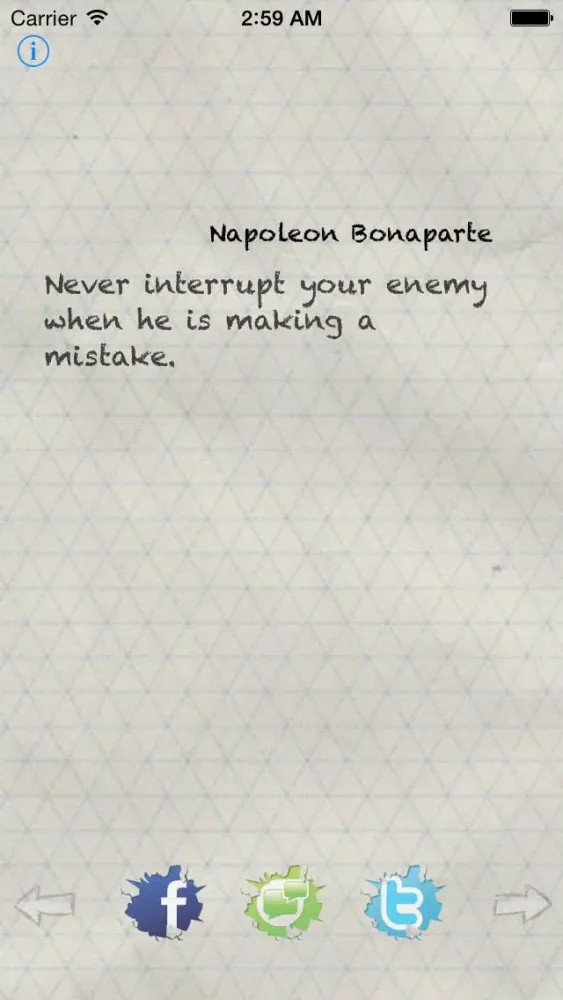 Carrier 2:59 AM
Napoleon Bonaparte
Never interrupt your enemy
when he is making a
mistake.